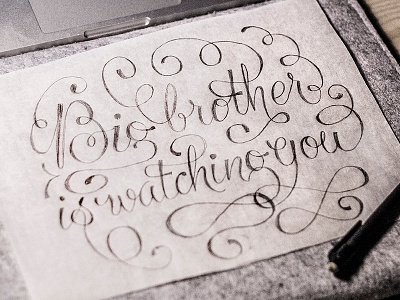 Big brother
is watching you